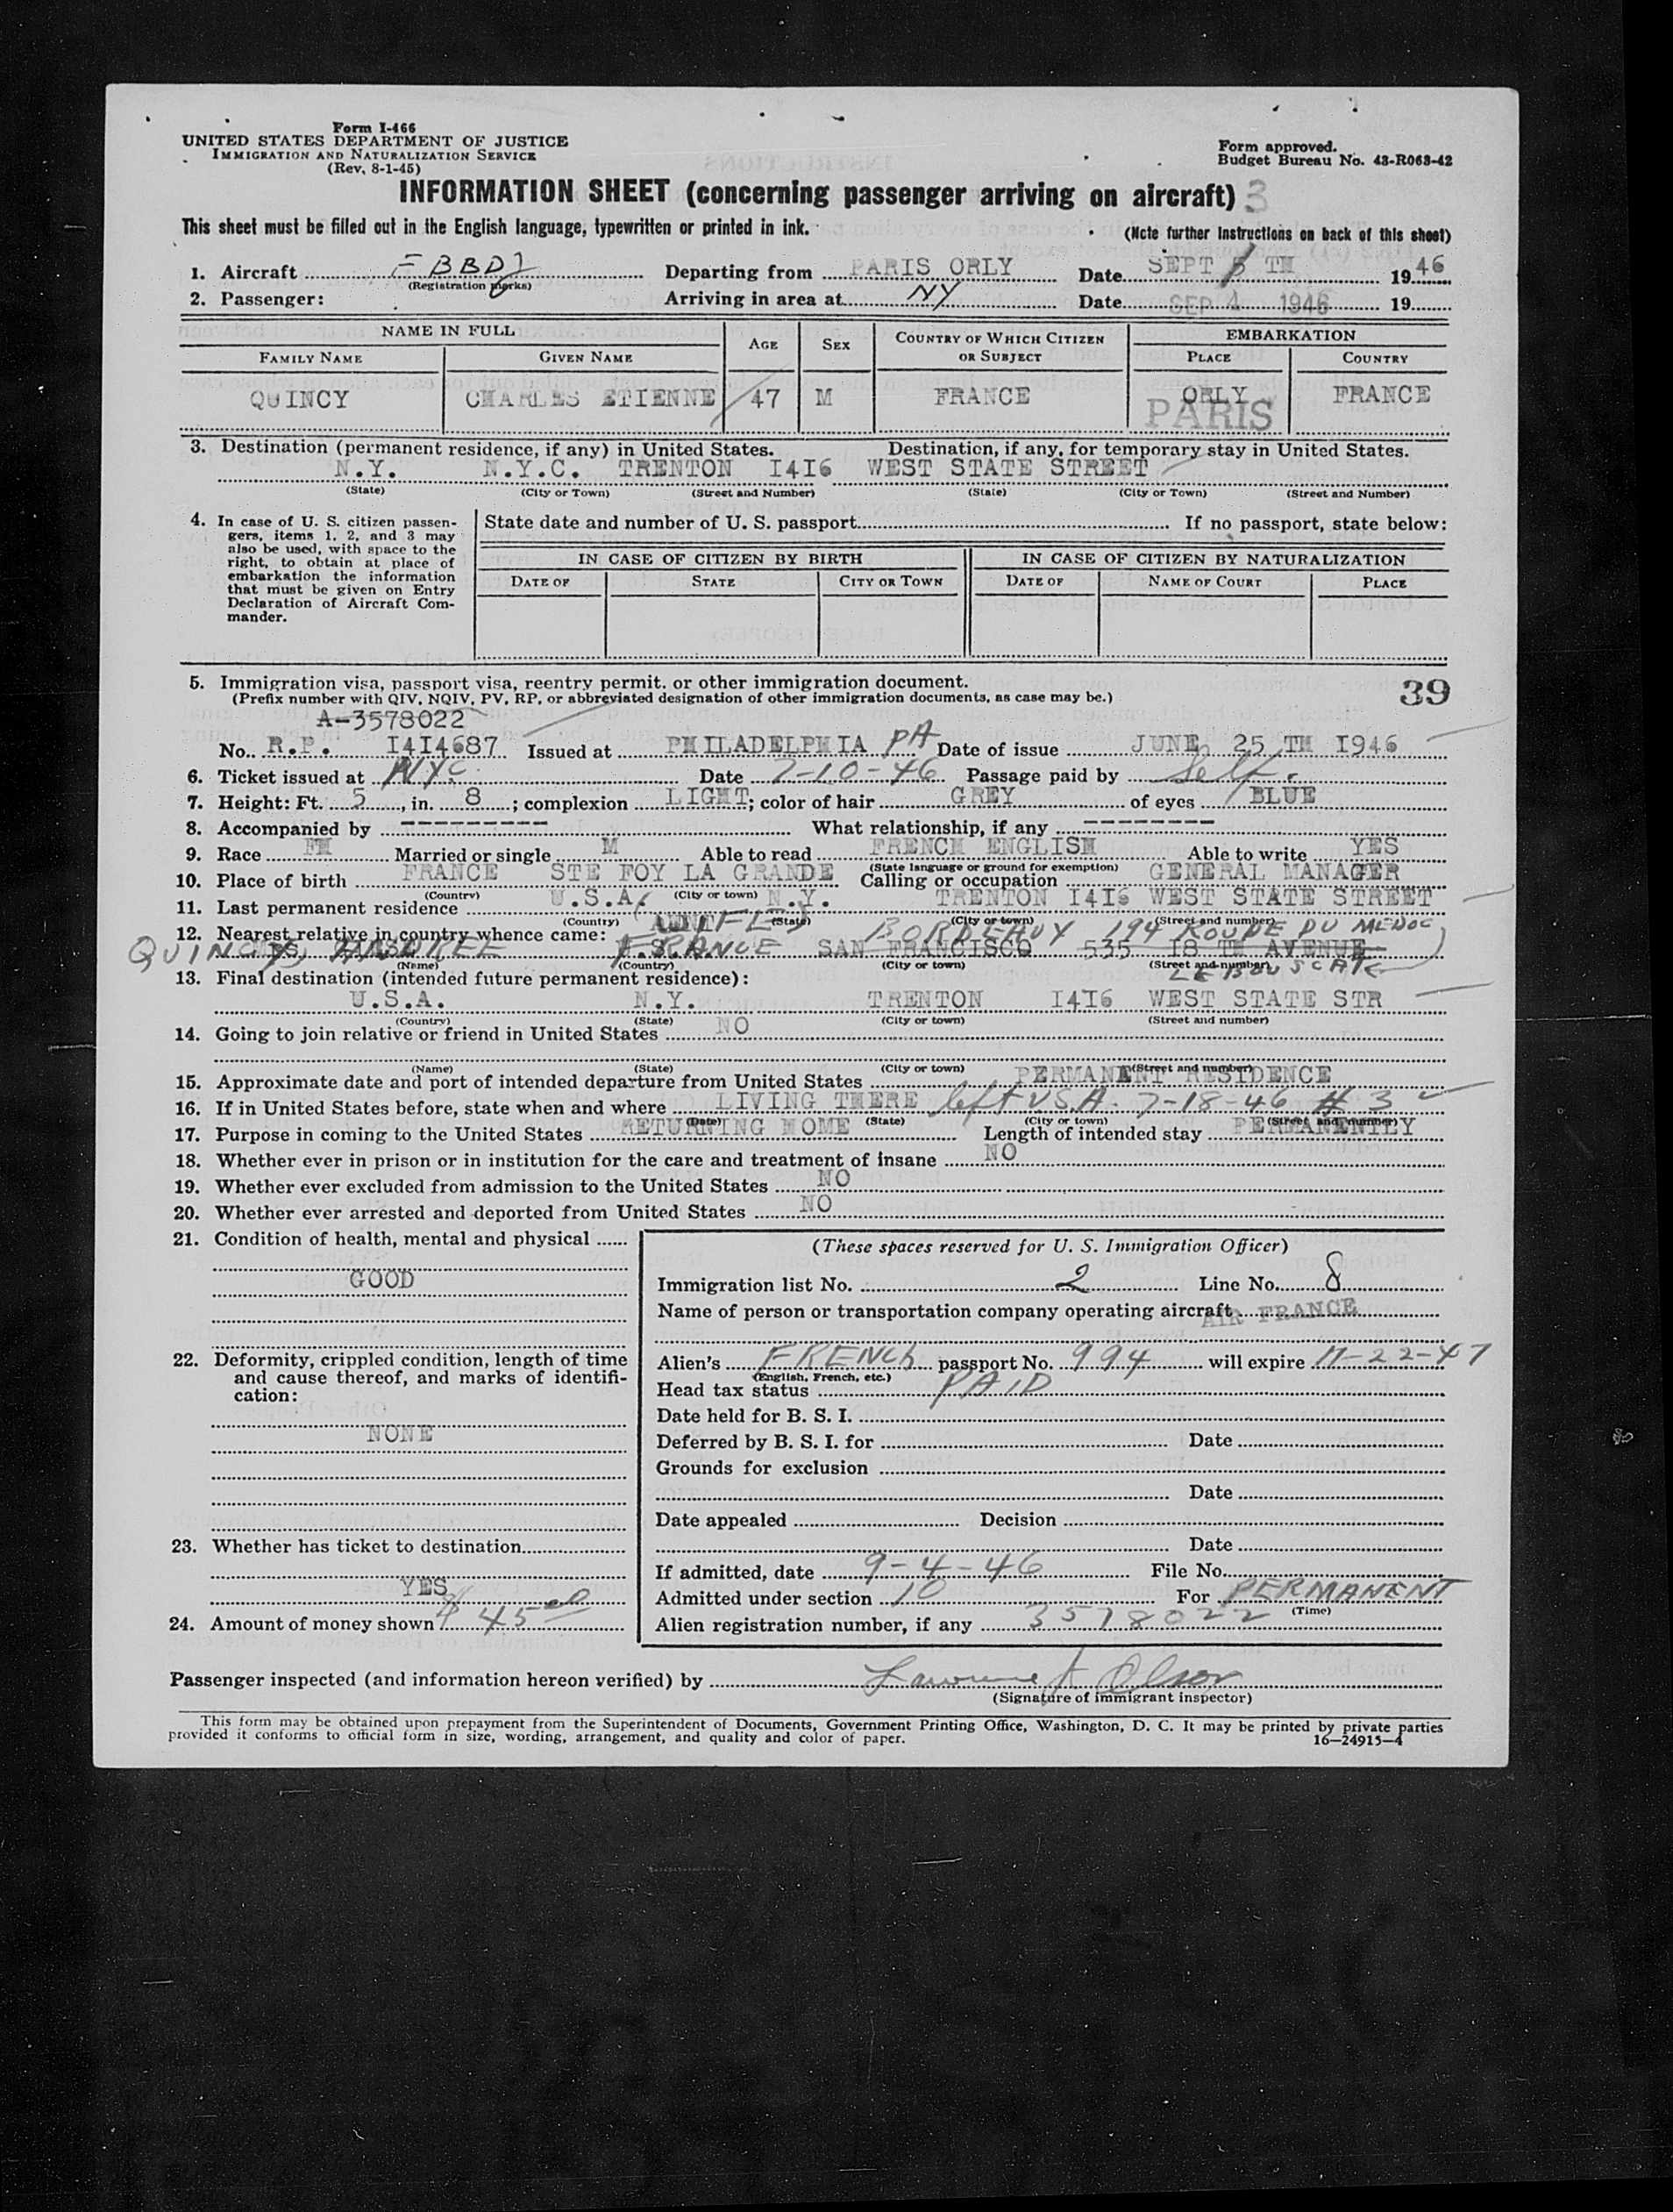 Form I-466
UNITED STATES DEPARTMENT OF JUSTICE
IMMIGRATION AND NATURALIZATION SERVICE
(Rev. 8-1-45)
Form approved.
Budget Bureau No. 43-R063-42
INFORMATION SHEET (concerning passenger arriving on aircraft) 3
This sheet must be filled out in the English language, typewritten or printed in ink.
(Note further instructions on back of this sheet)
1. Aircraft Departing from PARIS ORLY Date SEPT TH 19 46
(Registration marks)
2. Passenger: Arriving in area at NY Date SEP 4 1946 19
NAME IN FULL AGE SEX COUNTRY OF WHICH CITIZEN OR SUBJECT EMBARKATION
FAMILY NAME GIVEN NAME PLACE COUNTRY
QUINCY CHARLES ETIENNE 47 M FRANCE ORLY FRANCE
PARIS
3. Destination (permanent residence, if any) in United States. Destination, if any, for temporary stay in United States.
N.Y. N.Y.C. TRENTON I4I6 WEST STATE STREET
(State) (City or Town) (Street and Number) (State) (City or Town) (Street and Number)
4. In case of U. S. citizen passengers, items 1, 2, and 3 may also be used, with space to the right, to obtain at place of embarkation the information that must be given on Entry Declaration of Aircraft Commander.
State date and number of U. S. passport If no passport, state below:
IN CASE OF CITIZEN BY BIRTH IN CASE OF CITIZEN BY NATURALIZATION
DATE OF STATE CITY OR TOWN DATE OF NAME OF COURT PLACE
5. Immigration visa, passport visa, reentry permit, or other immigration document.
(Prefix number with QIV, NQIV, PV, RP, or abbreviated designation of other immigration documents, as case may be.)
39
A-3578022
No. R.P. I4I4687 Issued at PHILADELPHIA PA Date of issue JUNE 25 TH I946
6. Ticket issued at NYC Date 7-10-46 Passage paid by Self.
7. Height: Ft. 5, in. 8; complexion LIGHT; color of hair GREY of eyes BLUE
8. Accompanied by ---------- What relationship, if any ---------
9. Race FH Married or single M Able to read FRENCH ENGLISH Able to write YES
(State language or ground for exemption)
10. Place of birth FRANCE STE FOY LA GRANDE Calling or occupation GENERAL MANAGER
(Country) (City or town)
11. Last permanent residence U.S.A. N.Y. TRENTON I4I6 WEST STATE STREET
(Country) (State) (City or town) (Street and number)
12. Nearest relative in country whence came: BORDEAUX 194 ROUTE DU MEDOC
QUINCY, FRANCE SAN FRANCISCO 535 I8 TH AVENUE
(Name) (Country) (City or town) (Street and number) LE BOUSCAT
13. Final destination (intended future permanent residence):
U.S.A. N.Y. TRENTON I4I6 WEST STATE STR
(Country) (State) (City or town) (Street and number)
14. Going to join relative or friend in United States NO
(Name) (State) (City or town) (Street and number)
15. Approximate date and port of intended departure from United States PERMANENT RESIDENCE
16. If in United States before, state when and where LIVING THERE left U.S.A. 7-18-46 # 3
(Date) (State) (City or town) (Street and number)
17. Purpose in coming to the United States RETURNING HOME Length of intended stay PERMANENTLY
18. Whether ever in prison or in institution for the care and treatment of insane NO
19. Whether ever excluded from admission to the United States NO
20. Whether ever arrested and deported from United States NO
21. Condition of health, mental and physical
GOOD
22. Deformity, crippled condition, length of time and cause thereof, and marks of identification:
NONE
23. Whether has ticket to destination
YES
24. Amount of money shown $ 45 00
(These spaces reserved for U. S. Immigration Officer)
Immigration list No. 2 Line No. 8
Name of person or transportation company operating aircraft AIR FRANCE
Alien's FRENCH passport No. 994 will expire 11-22-47
(English, French, etc.)
Head tax status PAID
Date held for B. S. I.
Deferred by B. S. I. for Date
Grounds for exclusion
Date
Date appealed Decision
Date
If admitted, date 9-4-46 File No.
Admitted under section 10 For PERMANENT
(Time)
Alien registration number, if any 3578022
Passenger inspected (and information hereon verified) by Olson
(Signature of immigrant inspector)
This form may be obtained upon prepayment from the Superintendent of Documents, Government Printing Office, Washington, D. C. It may be printed by private parties
provided it conforms to official form in size, wording, arrangement, and quality and color of paper.
16—24915-4